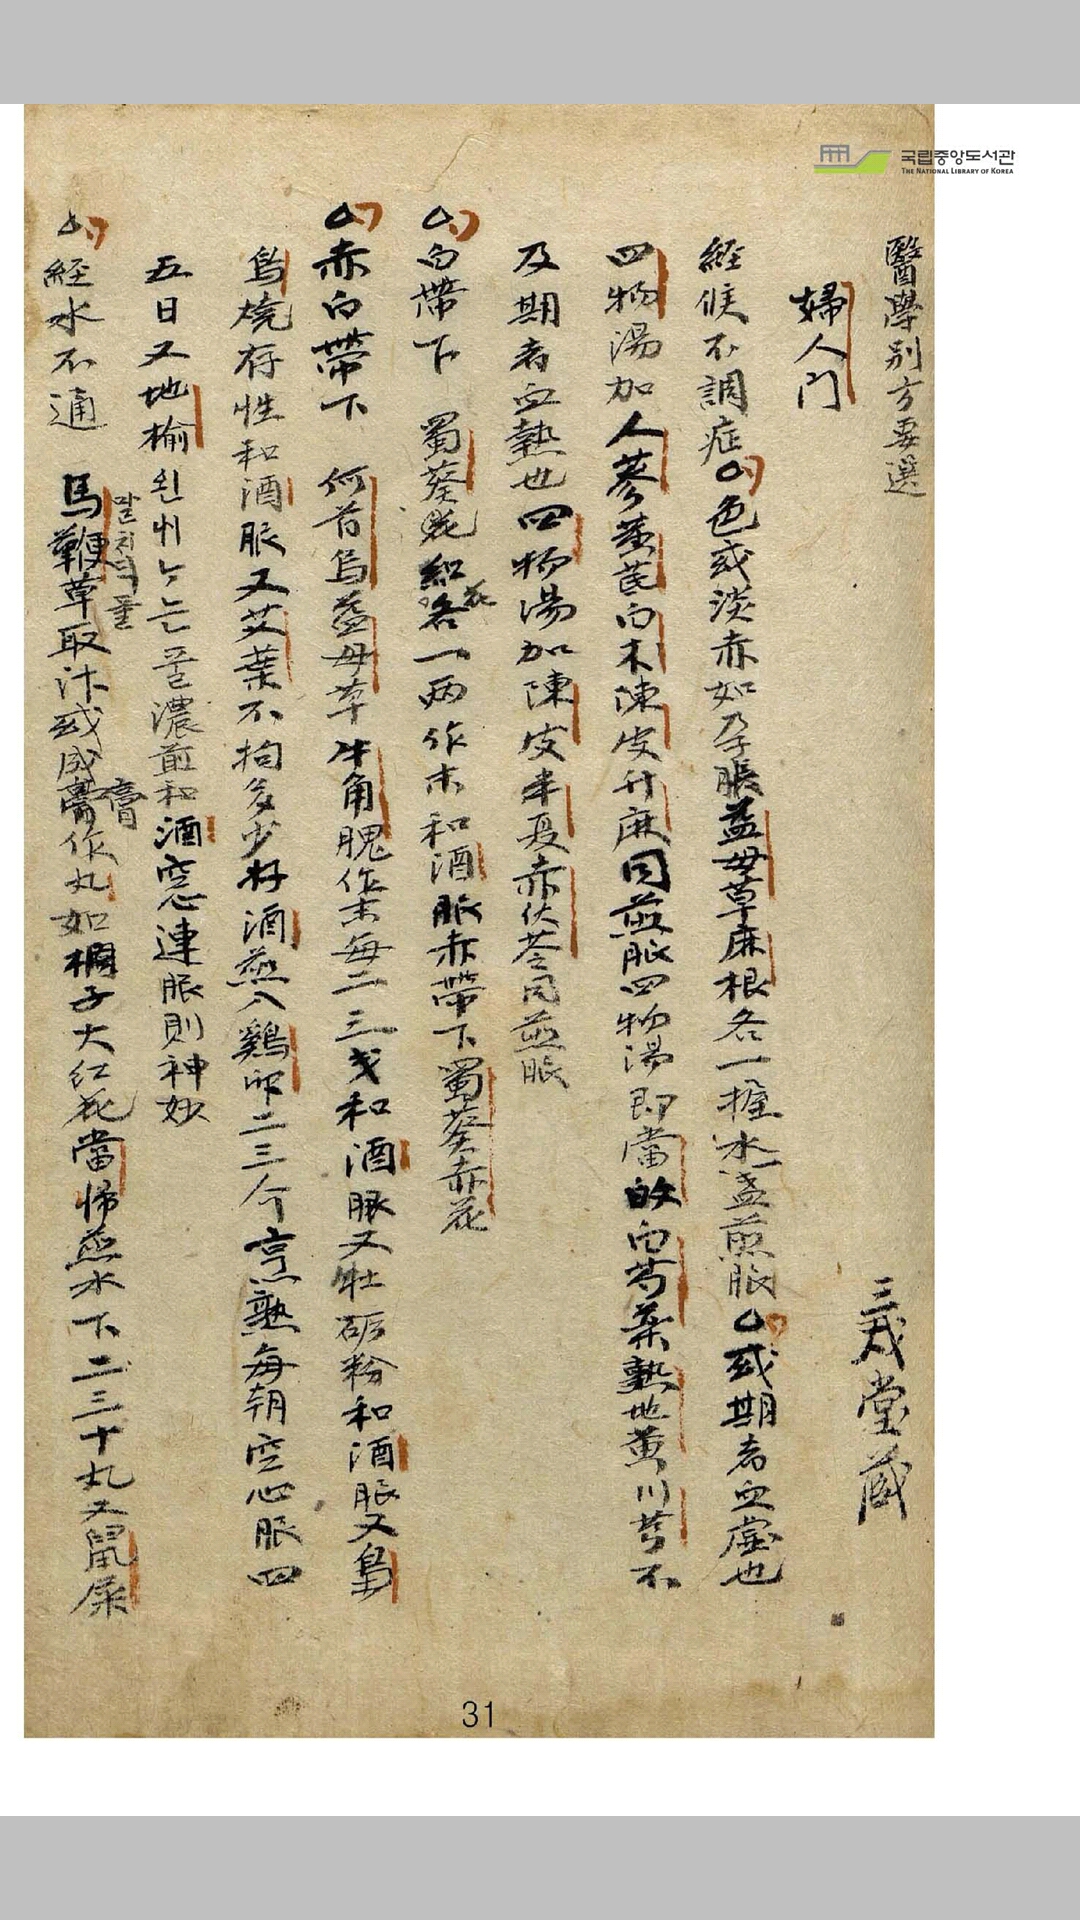 국립중앙도서관
THE NATIONAL LIBRARY OF KOREA
醫學別方要選
三戎堂蔵
婦人門
經候不調症 色或淡赤如孕脹益母草麻根各一握水一盞煎服 或期者血虛也
四物湯加人蔘黃茋白朮陳皮升麻同煎服四物湯即當的白芍藥熟地黃川芎不
及期者血熱也四物湯加陳皮半夏赤伏苓同煎服
白帶下 蜀葵花紅花各一兩作末和酒服赤帶下蜀葵赤花
赤白帶下 何首烏益母草牛角腮作末每二三戔和酒服又牡礪粉和酒服又梟
烏燒存性和酒服又艾葉不拘多少好酒煎入鷄卵二三个烹熟每朝空心服四
五日又地榆외ㄴㄴ는물濃煎和酒空心連服則神妙
經水不通 馬鞭草取汁或成膏作丸如桐子大红花當帰煎水下二三十丸又鼠屎
말치
膏
31